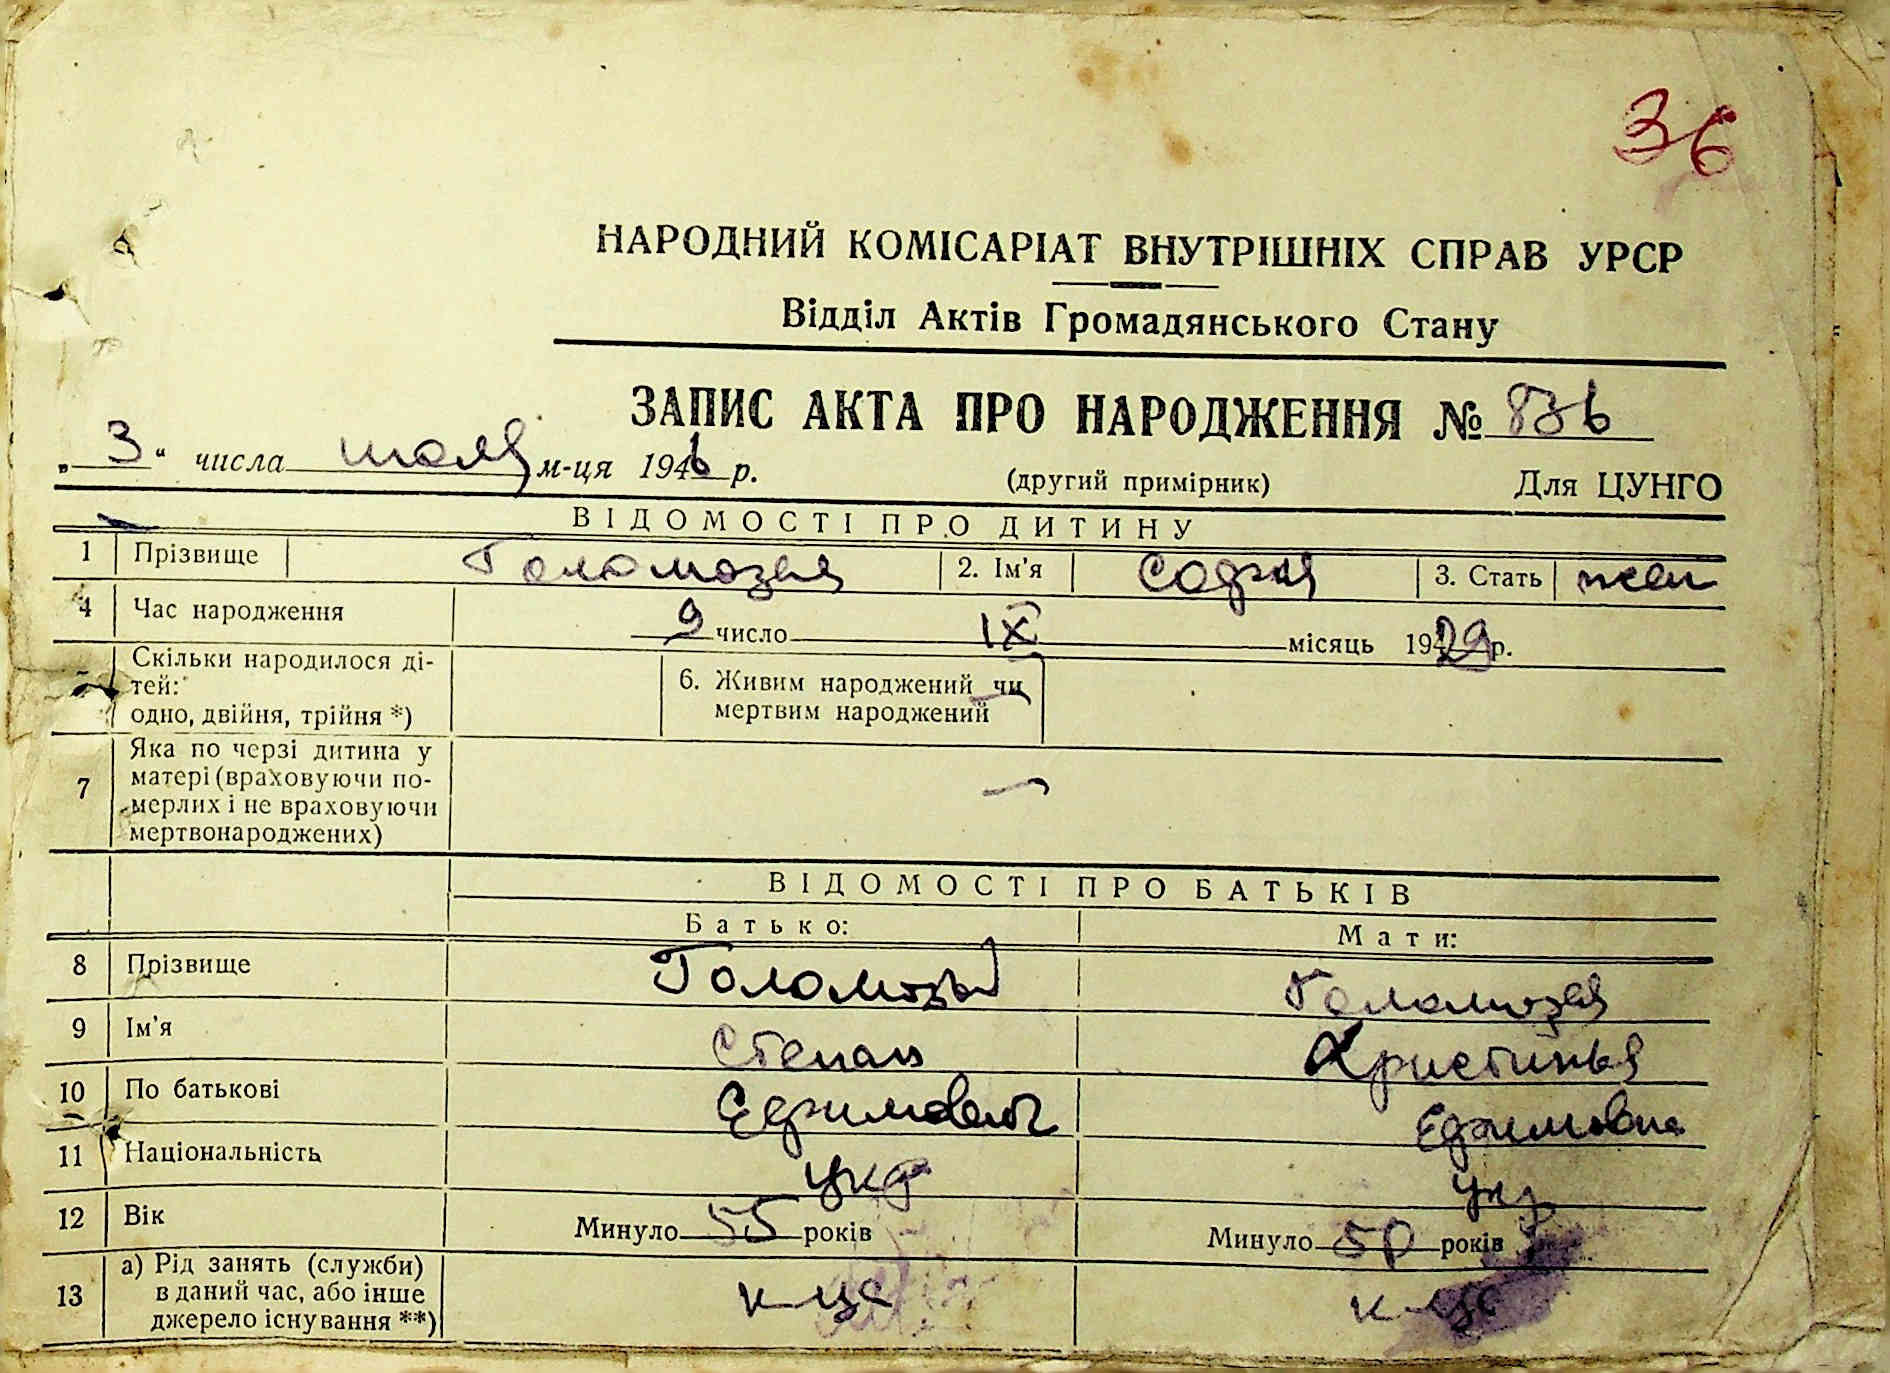 36
НАРОДНИЙ КОМІСАРІАТ ВНУТРІШНІХ СПРАВ УРСР
Відділ Актів Громадянського Стану
ЗАПИС АКТА ПРО НАРОДЖЕННЯ № 836
„ 3 “ числа июля м-ця 1946 р.
(другий примірник) Для ЦУНГО
ВІДОМОСТІ ПРО ДИТИНУ
1 Прізвище Голомозая 2. Ім'я София 3. Стать жен
4 Час народження 9 число IX місяць 1929 р.
Скільки народилося ді-
тей:
одно, двійня, трійня *)
6. Живим народжений чи
мертвим народжений
7 Яка по черзі дитина у
матері (враховуючи по-
мерлих і не враховуючи
мертвонароджених)
ВІДОМОСТІ ПРО БАТЬКІВ
Батько: Мати:
8 Прізвище Голомозый Голомозая
9 Ім'я Степан Христинья
10 По батькові Ефимович Ефимовна
11 Національність укр укр
12 Вік Минуло 55 років Минуло 50 років
13 а) Рід занять (служби)
в даний час, або інше
джерело існування **)